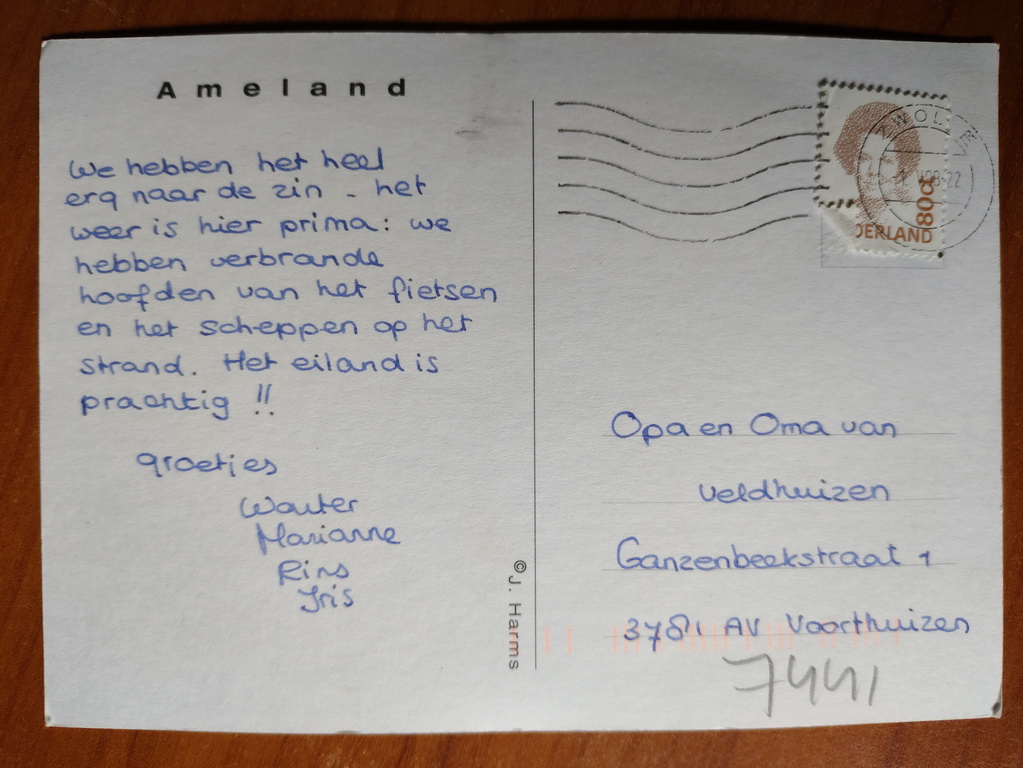 Ameland
We hebben het heel
erg naar de zin - het
weer is hier prima: we
hebben verbrande
hoofden van het fietsen
en het scheppen op het
strand. Het eiland is
prachtig !!
groetjes
Wouter
Marianne
Rins
Iris
© J. Harms
80c
DERLAND
Opa en Oma van
Veldhuizen
Ganzenbeekstraat 1
3781 AV Voorthuizen
7441